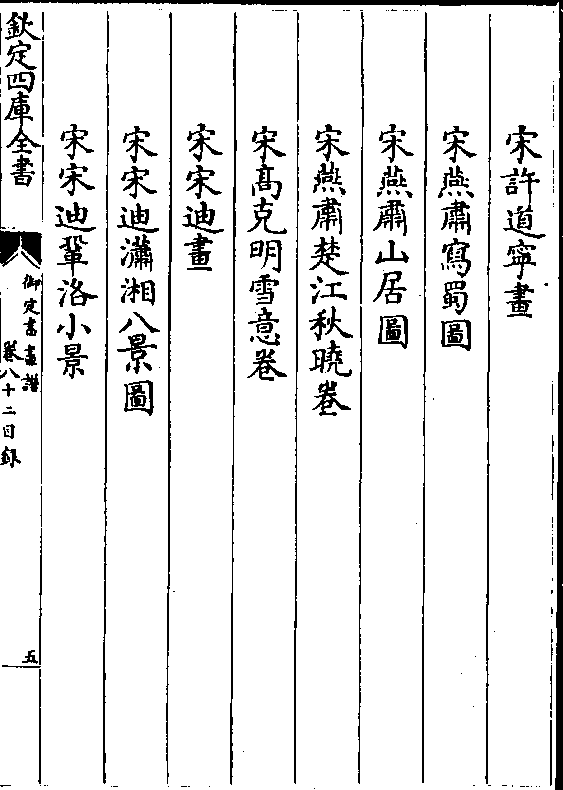 宋許道寧畫
宋燕肅寫蜀圖
宋燕肅山居圖
宋燕肅楚江秋曉卷
宋髙克明雪意卷
宋宋迪畫
宋宋迪瀟湘八景圖
宋宋迪鞏洛小景
欽定四庫全書
御定書畫譜
卷八十二目錄
五